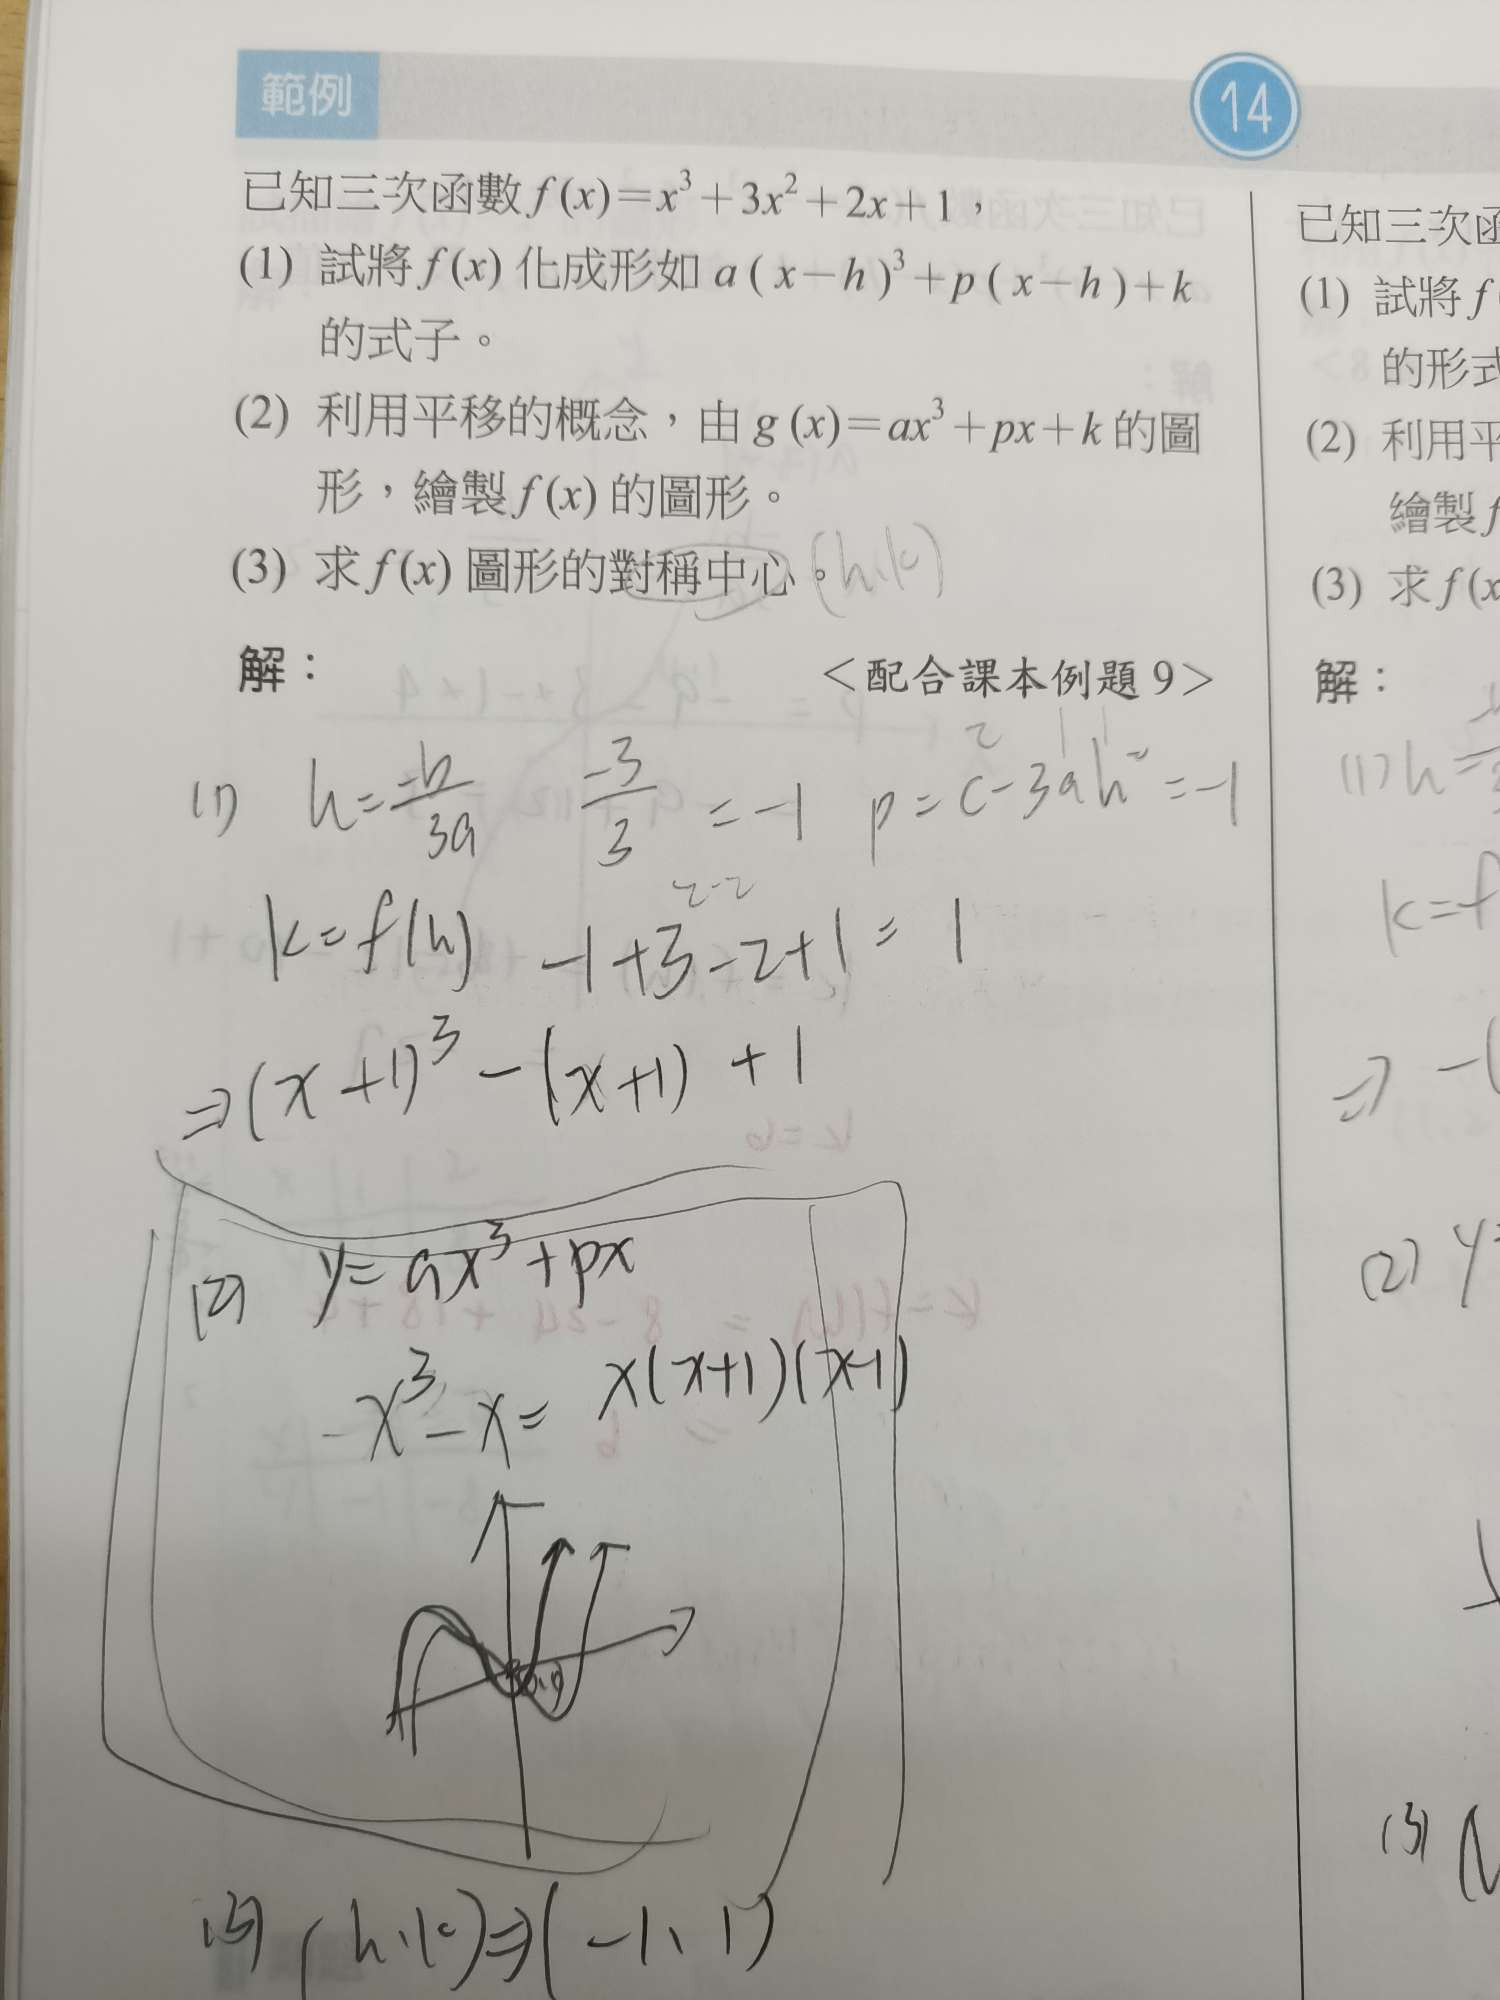 範例
14
已知三次函數 f (x)=x³+3x²+2x+1，
(1) 試將 f (x) 化成形如 a ( x−h )³+p ( x−h )+k
的式子。
(2) 利用平移的概念，由 g (x)=ax³+px+k 的圖
形，繪製 f (x) 的圖形。
(3) 求 f (x) 圖形的對稱中心。 (h、k)
解：
＜配合課本例題 9＞
(1) h= -b/3a  -3/3 = -1  p = c-3ah² = -1
2 1 1
2-2
k= f(h) -1+3-2+1= 1
⇒(x+1)³ -(x+1) +1
(2) y= ax³+px
-x³-x= x(x+1)(x-1)
(3) (h、k)⇒(-1、1)
已知三次函
(1) 試將 f
的形式
(2) 利用平
繪製 f
(3) 求 f (x
解：
(1) h=
k=f
⇒ -(
(2) y=
(3) (